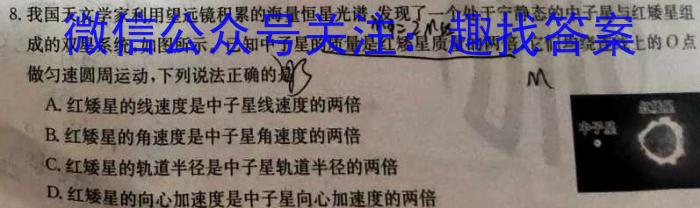 8.我国天文学家利用望远镜积累的海量恒星光谱,发现了一个处于宁静态的中子星与红矮星组
成的双星系统,如图所示,已知中子星的质量是红矮星质量的两倍,它们绕连线上的O点
微信公众号关注：趣找答案
做匀速圆周运动,下列说法正确的是
M
A.红矮星的线速度是中子星线速度的两倍
B.红矮星的角速度是中子星角速度的两倍
C.红矮星的轨道半径是中子星轨道半径的两倍
D.红矮星的向心加速度是中子星向心加速度的两倍
中子星
红矮星